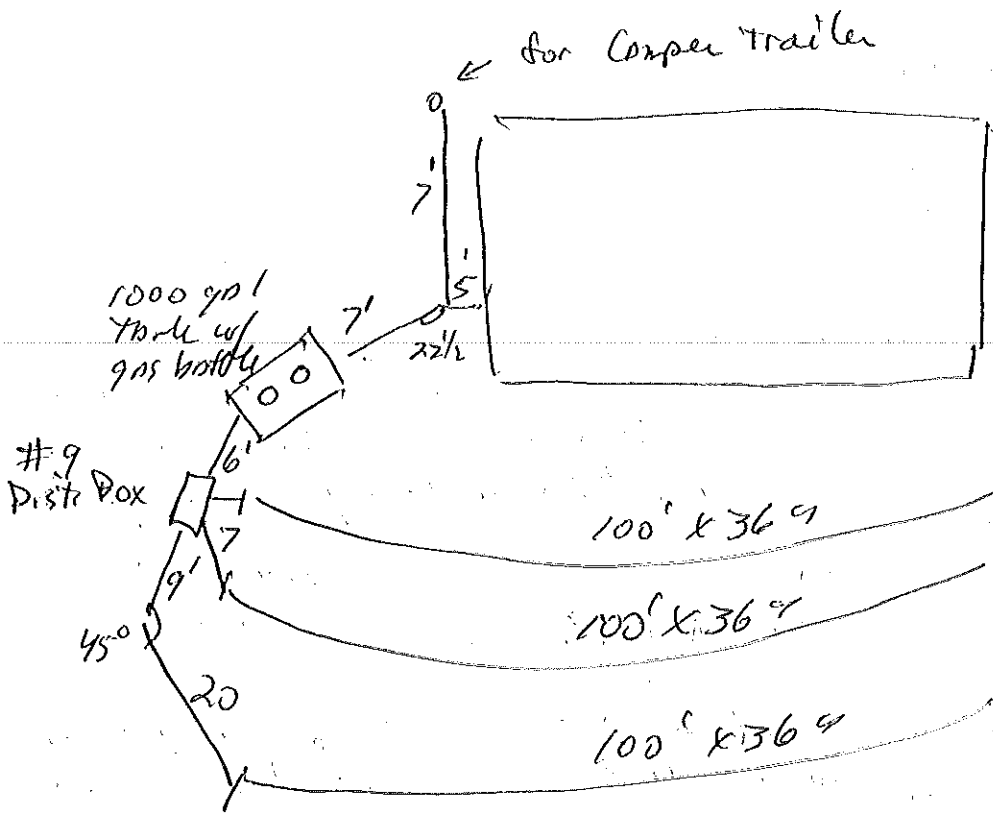 for Camper Trailer
7'
5'
22½
7'
1000 gal
Tank w/
gas baffle
6'
#9
Distr Box
7
9'
45°
20
100' X 36"
100' X 36"
100' X 36"